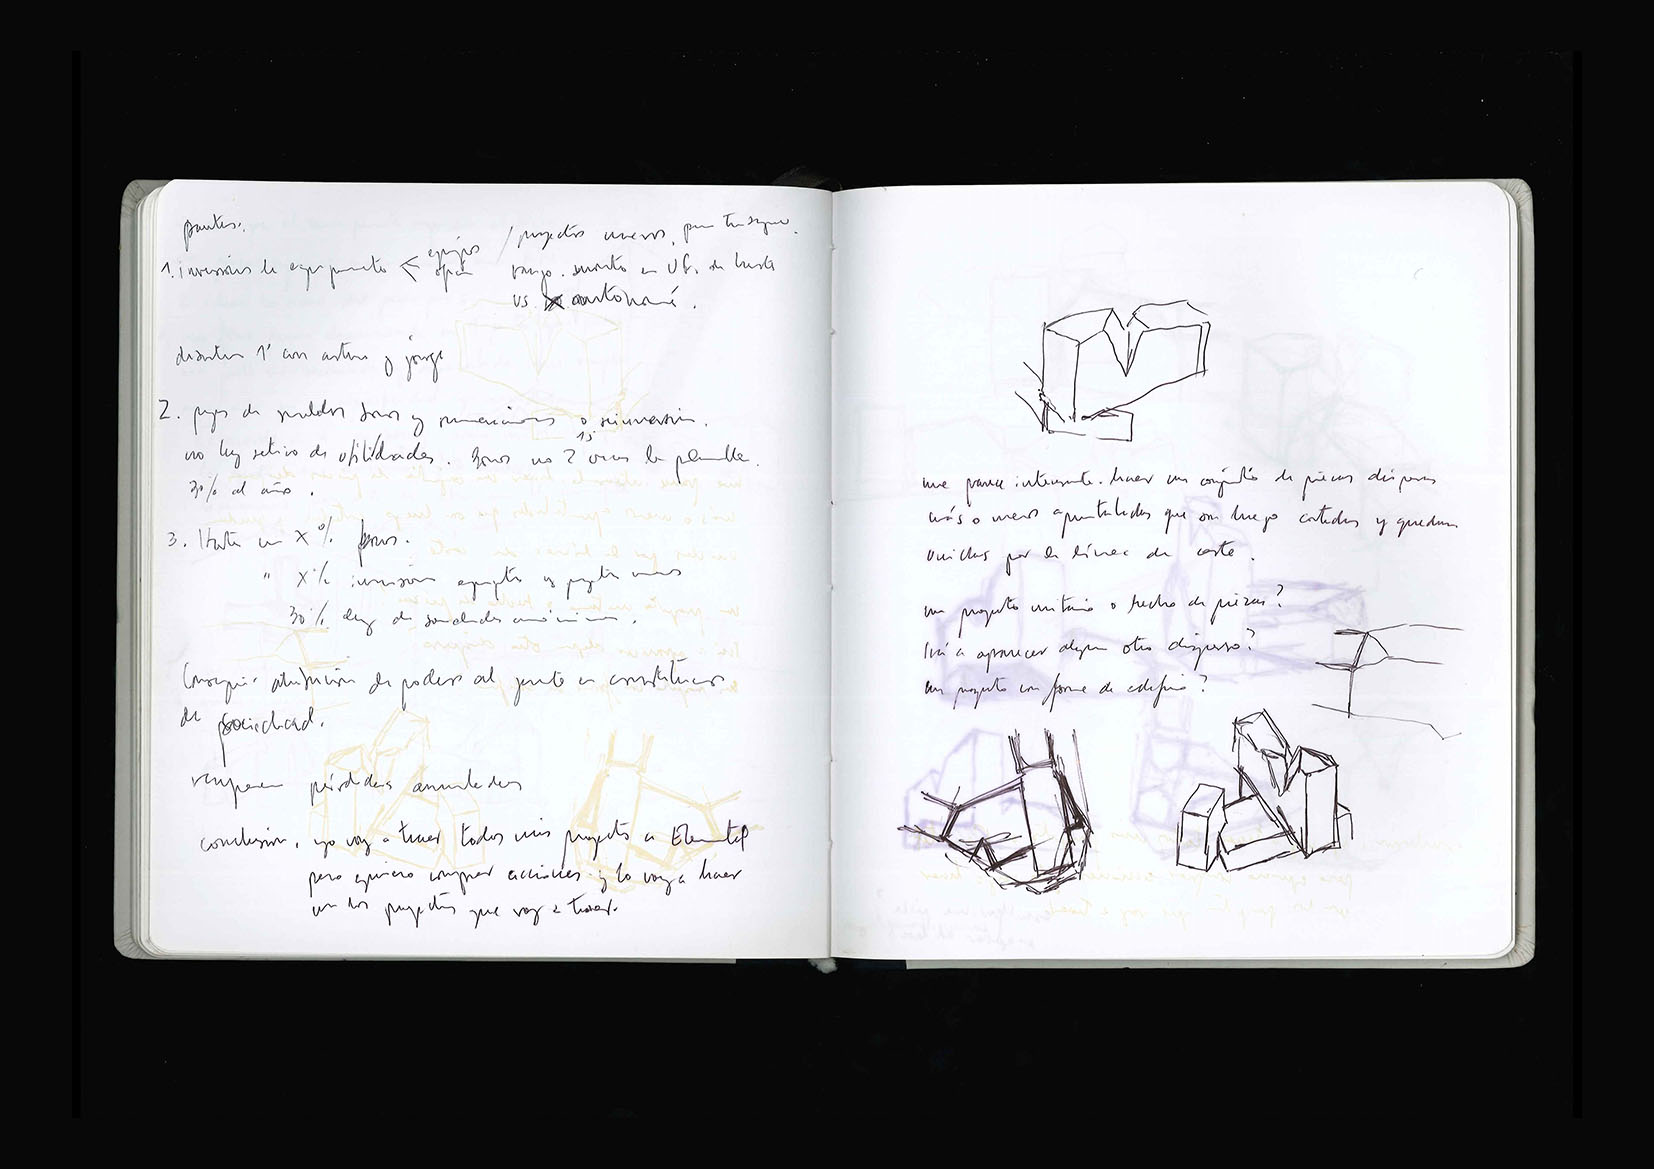 pautas.
1. inversión de equipamiento < equipos / proyectos nuevos, para
oficina rango. monto en UF. de hasta
vs. autonomí.
discutir 1° con arturo y jorge
2. pago de sueldos bonos y remuneraciones o reinversión.
no hay retiro de utilidades. Bonos no 2 veces la planilla.
15
30% al año.
3. Hasta un X% bonos.
" X% inversión equipto y proyectos nuevos
30% ley de sociedades anónimas.
Conseguir atribución de poderes al gerente en constitución
de sociedad.
recuperar pérdidas acumuladas
conclusión. yo voy a traer todos mis proyectos a Elemental
pero quiero comprar acciones y lo voy a hacer
con los proyectos que voy a traer.
me parece interesante. hacer un conjunto de piezas dispersas
más o menos apuntaladas que son luego cortadas y quedan
unidas por la línea de corte.
un proyecto unitario o hecho de piezas?
Irá a aparecer algún otro disperso?
un proyecto con forma de edificio?